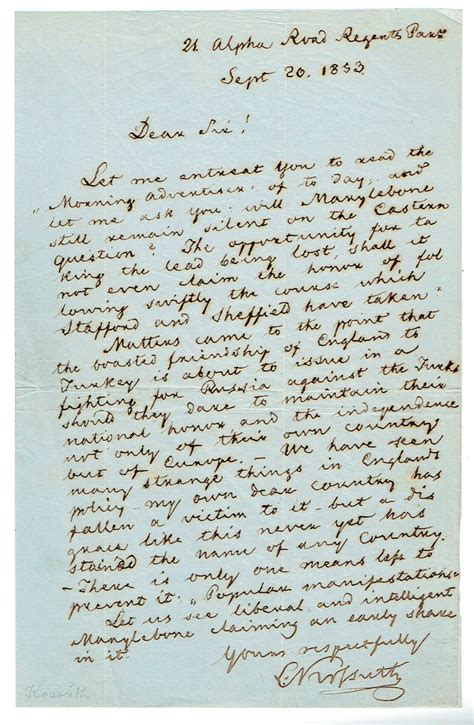 21 Alpha Road Regents Park
Sept 20. 1853.
Dear Sir!
Let me entreat you to read the
„Morning advertiser" of to day, and
let me ask you: will Marylebone
still remain silent on the Eastern
question? The opportunity for ta
king the lead being lost, shall it
not even claim the honor of fol
lowing swiftly the course which
Stafford and Sheffield have taken-
Matters came to the point that
the boasted friendship of England to
Turkey is about to issue in a
fighting for Russia against the Turks
should they dare to maintain their
national honor and the independence
not only of their own country
but of Europe. - We have seen
many strange things in England's
policy - my own dear country has
fallen a victim to it - but a dis
grace like this never yet has
stained the name of any Country.
- There is only one means left to
prevent it: „Popular manifestations"
Let us see liberal and intelligent
Marylebone claiming an early share
in it.
Yours respectfully
Kossuth